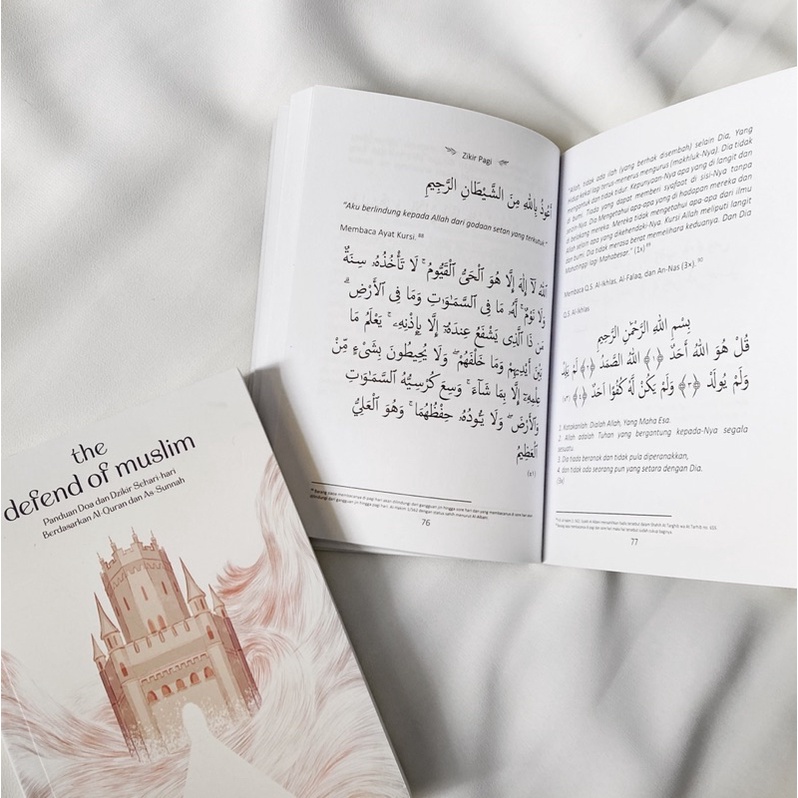 the
defend of muslim
Panduan Doa dan Dzikir Sehari-hari
Berdasarkan Al-Quran dan As-Sunnah
Zikir Pagi
أَعُوذُ بِاللهِ مِنَ الشَّيْطَانِ الرَّجِيمِ
"Aku berlindung kepada Allah dari godaan setan yang terkutuk."
Membaca Ayat Kursi. 88
ٱللَّهُ لَآ إِلَٰهَ إِلَّا هُوَ ٱلْحَىُّ ٱلْقَيُّومُ ۚ لَا تَأْخُذُهُۥ سِنَةٌ
وَلَا نَوْمٌ ۚ لَّهُۥ مَا فِى ٱلسَّمَٰوَٰتِ وَمَا فِى ٱلْأَرْضِ ۗ
مَن ذَا ٱلَّذِى يَشْفَعُ عِندَهُۥٓ إِلَّا بِإِذْنِهِۦ ۚ يَعْلَمُ مَا
بَيْنَ أَيْدِيهِمْ وَمَا خَلْفَهُمْ ۖ وَلَا يُحِيطُونَ بِشَىْءٍ مِّنْ
عِلْمِهِۦٓ إِلَّا بِمَا شَآءَ ۚ وَسِعَ كُرْسِيُّهُ ٱلسَّمَٰوَٰتِ
وَٱلْأَرْضَ ۖ وَلَا يَـُٔودُهُۥ حِفْظُهُمَا ۚ وَهُوَ ٱلْعَلِىُّ
ٱلْعَظِيمُ
(x١)
76
"Allah, tidak ada ilah (yang berhak disembah) selain Dia, Yang
Hidup kekal lagi terus-menerus mengurus (makhluk-Nya). Dia tidak
mengantuk dan tidak tidur. Kepunyaan-Nya apa yang di langit dan
di bumi. Tiada yang dapat memberi syafaat di sisi-Nya tanpa
seizin-Nya. Dia Mengetahui apa-apa yang di hadapan mereka dan
di belakang mereka. Mereka tidak mengetahui apa-apa dari ilmu
Allah selain apa yang dikehendaki-Nya. Kursi Allah meliputi langit
dan bumi. Dia tidak merasa berat memelihara keduanya. Dan Dia
Mahatinggi lagi Mahabesar." (1x) 89
Membaca Q.S. Al-Ikhlas, Al-Falaq, dan An-Nas (3×). 90
Q.S. Al-Ikhlas
بِسْمِ اللهِ الرَّحْمٰنِ الرَّحِيمِ
قُلْ هُوَ اللهُ أَحَدٌ ﴿١﴾ اللهُ الصَّمَدُ ﴿٢﴾ لَمْ يَلِدْ
وَلَمْ يُولَدْ ﴿٣﴾ وَلَمْ يَكُنْ لَهُ كُفُوًا أَحَدٌ ﴿٤﴾ (x٣)
1. Katakanlah, Dialah Allah, Yang Maha Esa.
2. Allah adalah Tuhan yang bergantung kepada-Nya segala
sesuatu.
3. Dia tiada beranak dan tidak pula diperanakkan,
4. dan tidak ada seorang pun yang setara dengan Dia.
(3x)
77